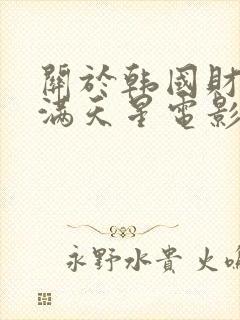 關於韩國財
滿天星電影
永野水貴 火鳴